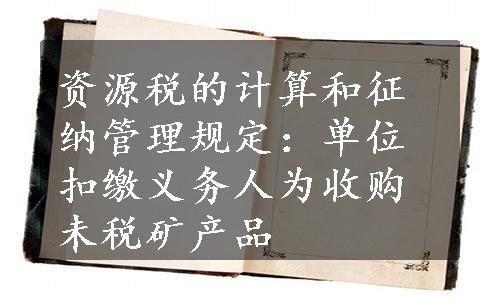 资源税的计算和征
纳管理规定：单位
扣缴义务人为收购
未税矿产品